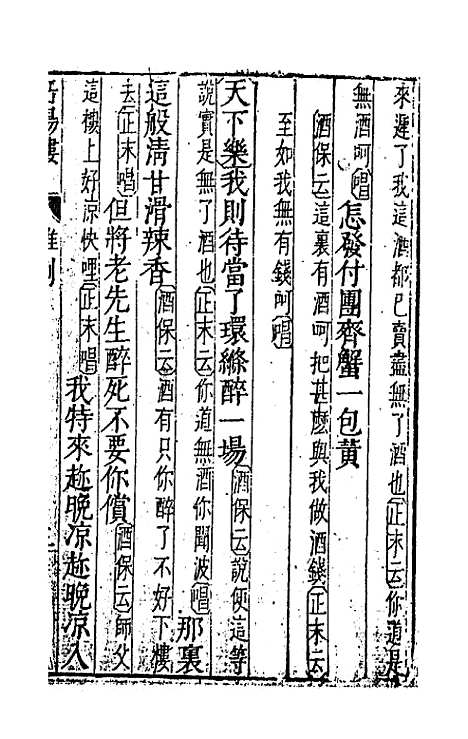 來遲了我這酒都已賣盡無了酒也正末云你道是
無酒呵唱怎發付團齊蟹一包黃
酒保云這裏有酒呵把甚麽與我做酒錢正末云
至如我無有錢呵唱
天下樂我則待當了環縧醉一場酒保云說便這等
說實是無了酒也正末云你道無酒你聞波唱那裏
這般清甘滑辣香酒保云酒有只你醉了不好下樓
去正末唱但將老先生醉死不要你償酒保云師父
這樓上好凉快哩正末唱我特來趂晚凉趂晚凉入
岳陽樓